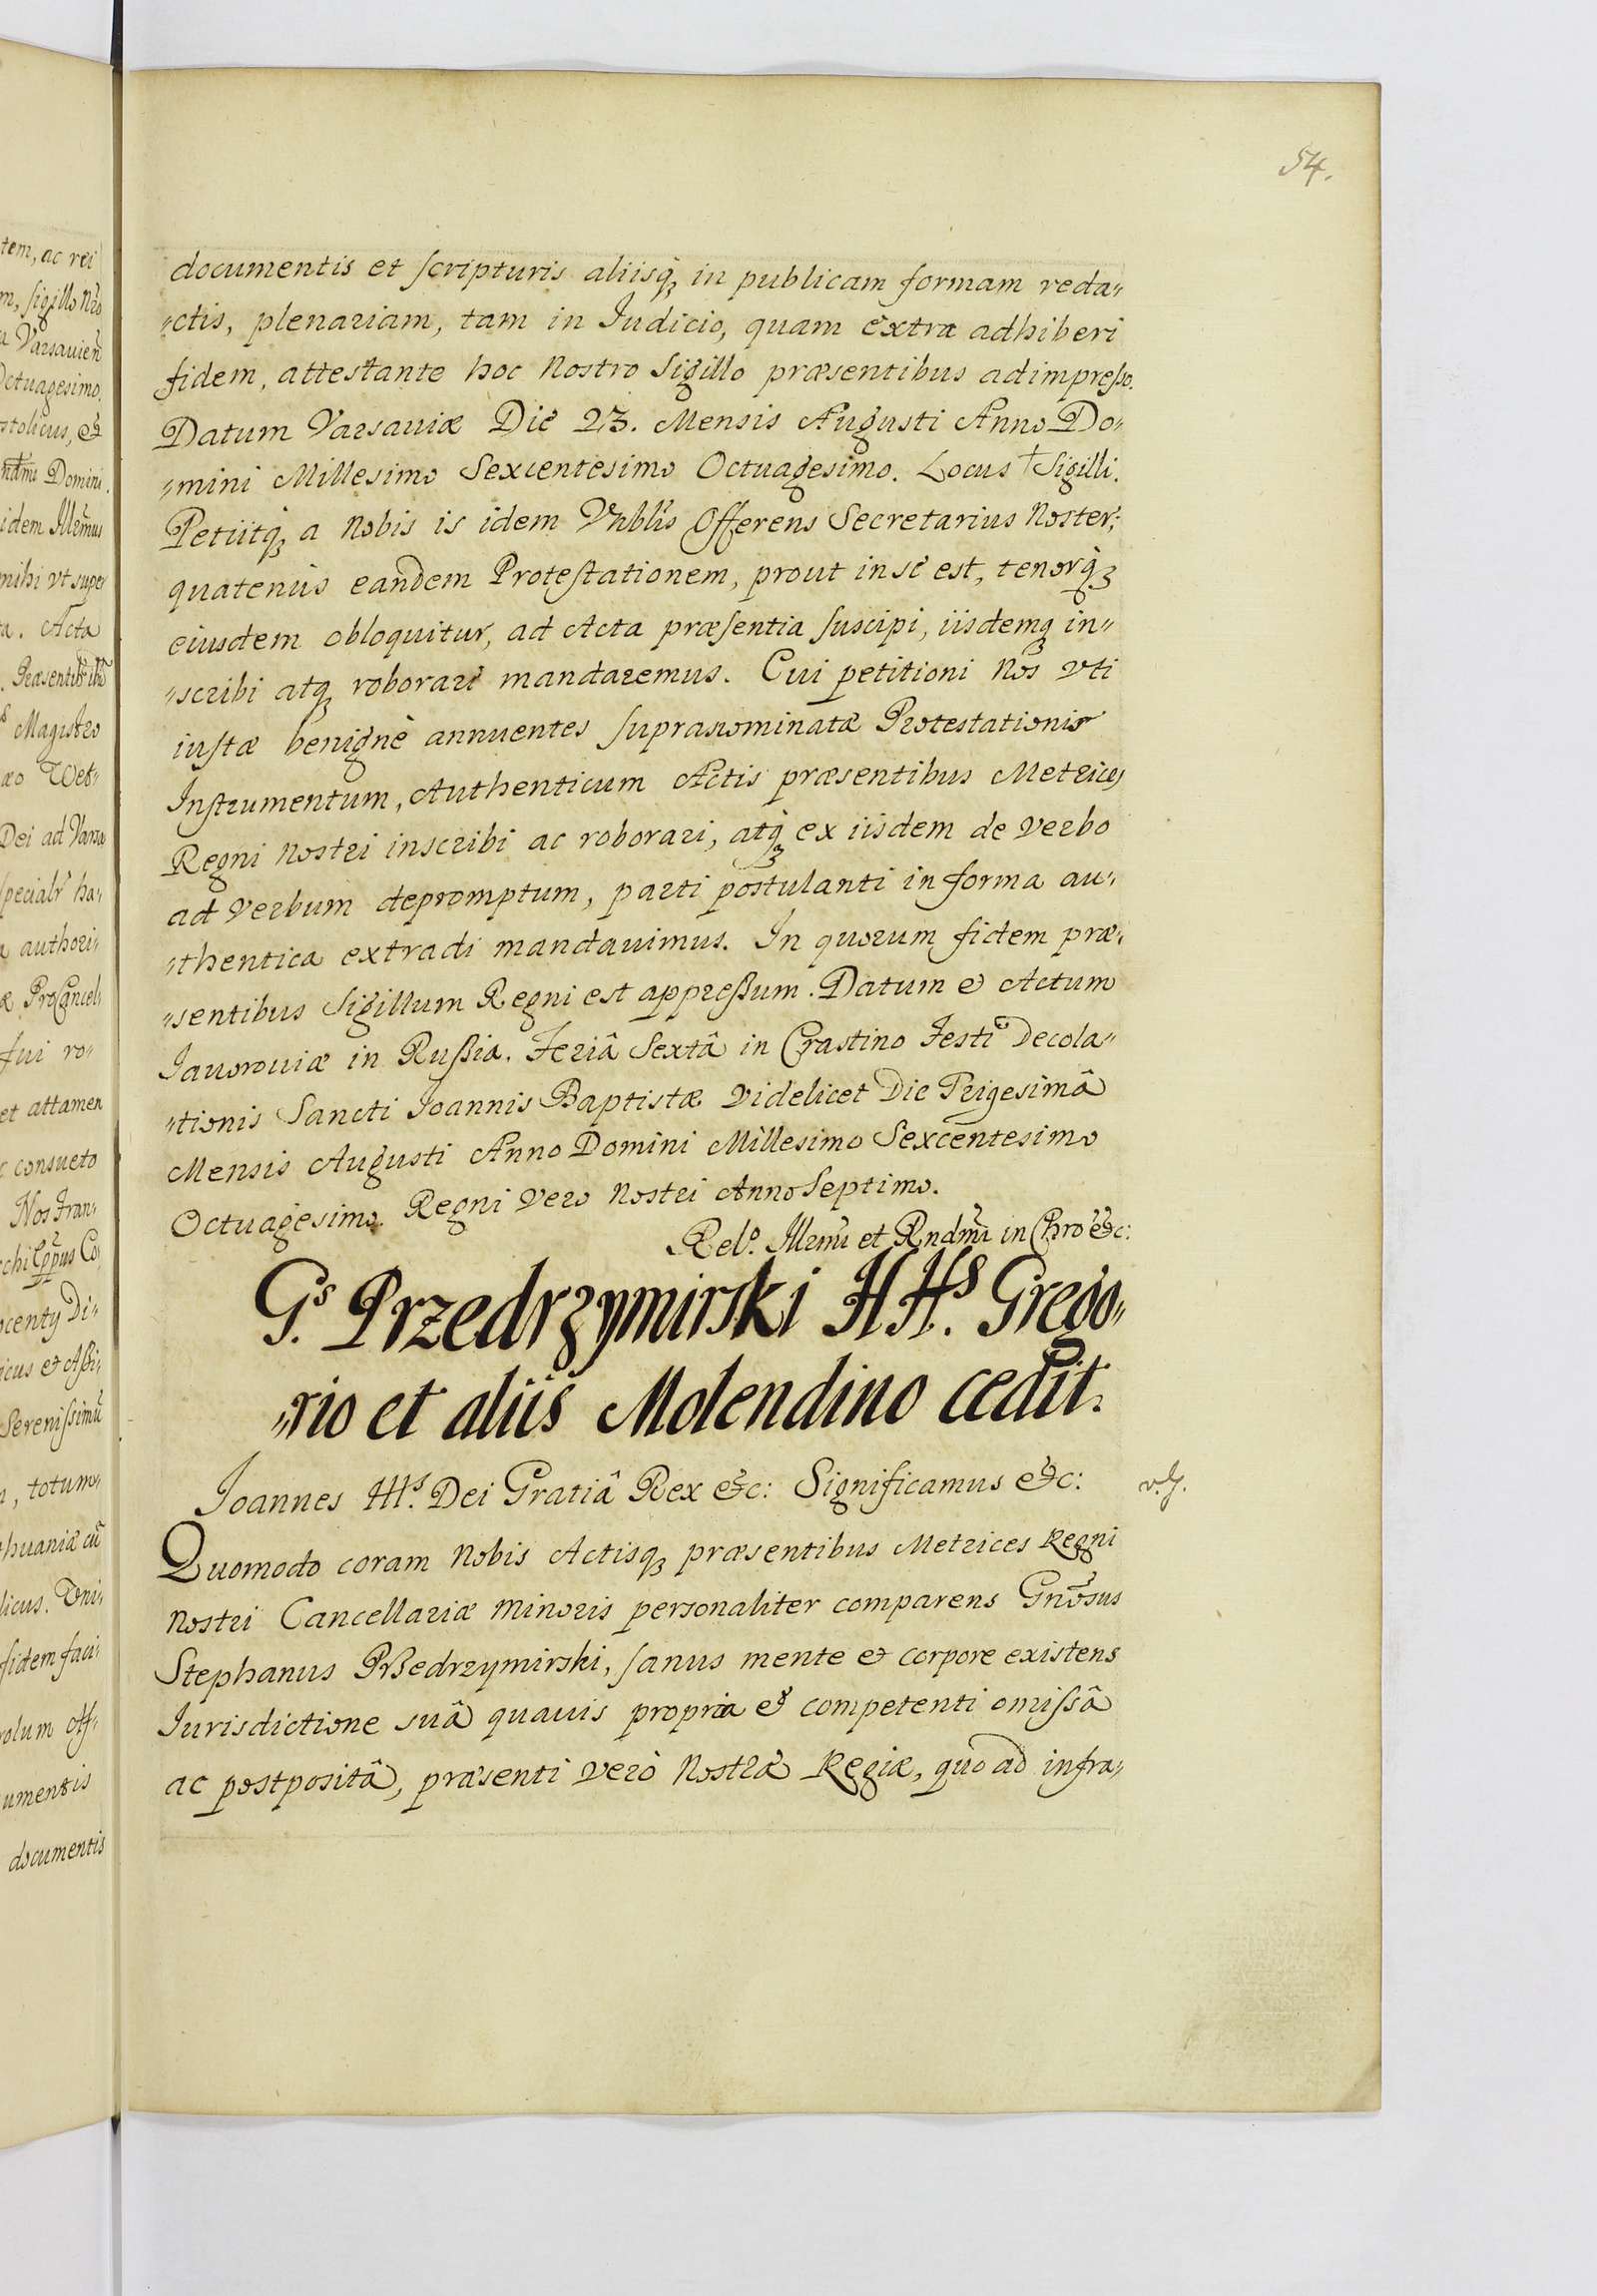 54.
documentis et scripturis aliisq, in publicam formam reda„
„ctis, plenariam, tam in Iudicio, quam extra adhiberi
fidem, attestante hoc Nostro Sigillo præsentibus adimpreßo.
Datum Varsaviæ Die 23. Mensis Augusti Anno Do„
„mini Millesimo Sexcentesimo Octuagesimo. Locus † Sigilli.
Petiitq, a Nobis is idem Vrblis Offerens Secretarius Noster;
quatenus eandem Protestationem, prout in se est, tenorq,
eiusdem obloquitur, ad Acta præsentia suscipi, iisdemq in„
„scribi atq, roborari mandaremus. Cui petitioni Nos vti
iustæ benignè annuentes supranominatæ Protestationis
Instrumentum, Authenticum Actis præsentibus Metrices
Regni Nostri inscribi ac roborari, atq, ex iisdem de verbo
ad verbum depromptum, parti postulanti in forma au„
„thentica extradi mandavimus. In quorum fidem præ„
„sentibus Sigillum Regni est appreßum. Datum & Actum
Iavoroviæ in Rußia. Feriâ Sextâ in Crastino Festi Decola„
„tionis Sancti Ioannis Baptistæ videlicet Die Trigesimâ
Mensis Augusti Anno Domini Millesimo Sexcentesimo
Octuagesimo. Regni vero Nostri Anno Septimo.
Relo. Illrmi et Rndmi in Chro &c:
Gs. Przedrzymirski HHs. Grego„
„rio et aliis Molendino cedit.
Ioannes IIIs. Dei Gratiâ Rex &c: Significamus &c:
Quomodo coram Nobis Actisq, præsentibus Metrices Regni
Nostri Cancellariæ Minoris personaliter comparens Gnosus
Stephanus Przedrzymirski, sanus mente & corpore existens
Iurisdictione suâ quavis propria & competenti omissâ
ac postpositâ, præsenti verò Nostræ Regiæ, quo ad infra„